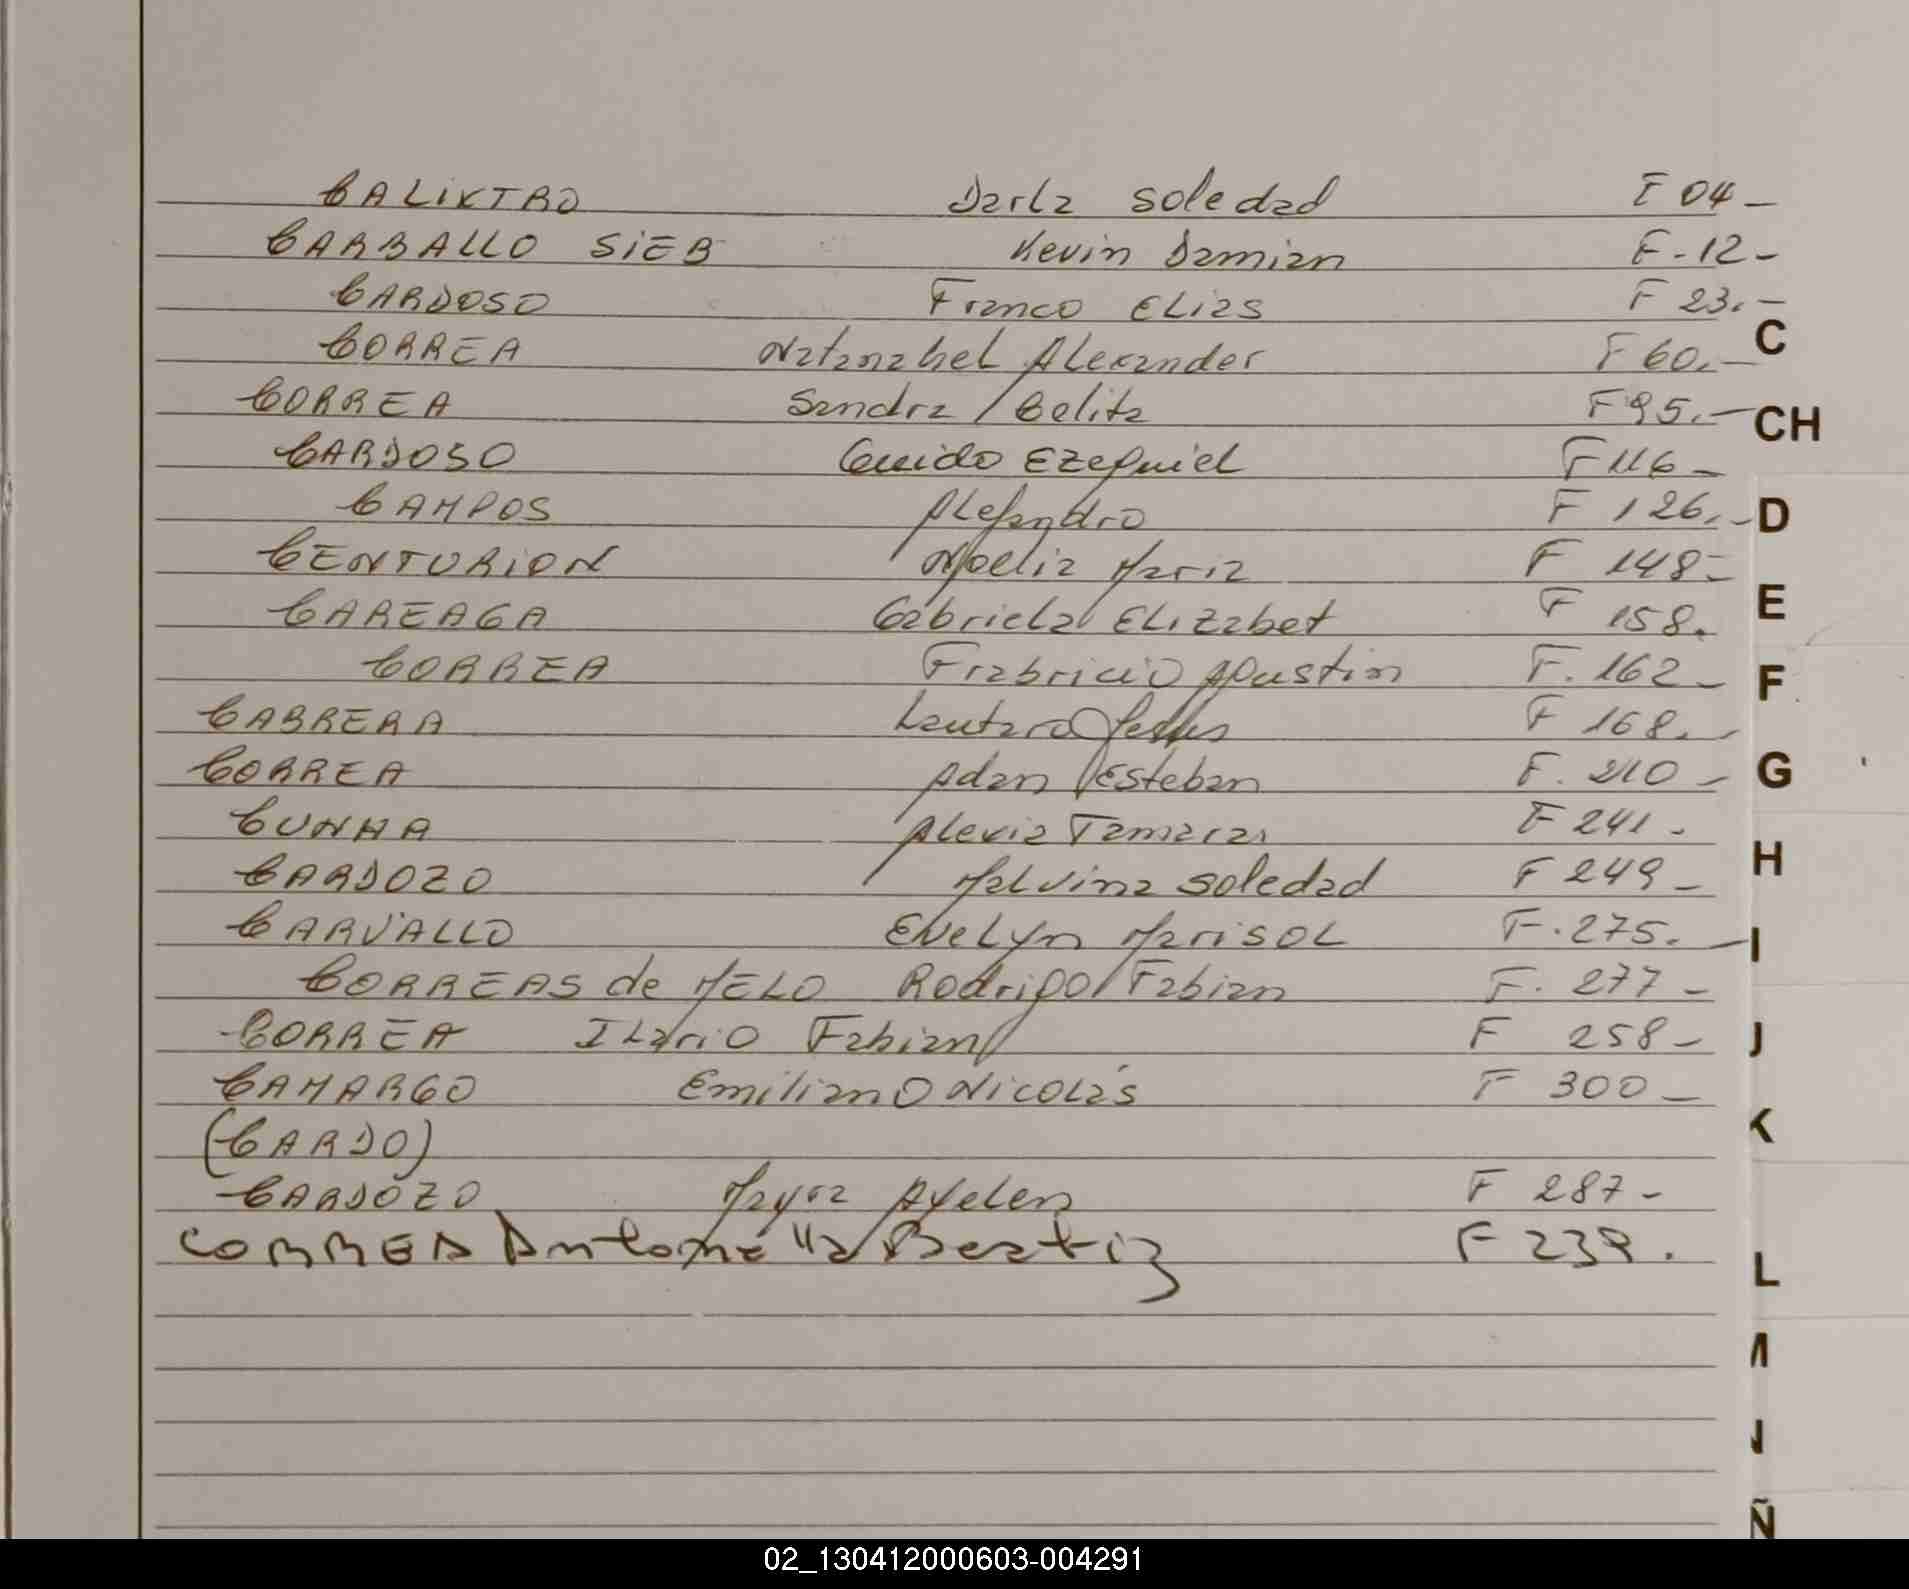 CALIXTRO Darla Soledad F 04 -
CARBALLO SIEB Kevin Damian F - 12 -
CARDOSO Franco Elias F 23. -
CORREA Natanahel Alexander F 60. -
C
CORREA Sandra Belita F 95. -
CH
CARDOSO Guido Ezequiel F 116 -
CAMPOS Alejandro F 126. -
D
CENTURION Noelia Maria F 148 -
CAREAGA Gabriela Elizabet F 158.
E
CORREA Frabricio Agustin F. 162 -
F
CABRERA Lautaro Jesus F 168. -
CORREA Adan Esteban F. 210 -
G
CUNHA Alexia Tamara F 241 -
CARDOZO Malvina Soledad F 249 -
H
CARVALLO Evelyn Marisol F. 275. -
I
CORREAS de MELO Rodrigo Fabian F. 277 -
CORREA Ilario Fabian F 258 -
J
CAMARGO Emiliano Nicolás F 300 -
(CARDO)
K
CARDOZO Mayra Ayelen F 287 -
CORREA Antonella Beatriz F 239.
L
M
N
Ñ
02_130412000603-004291